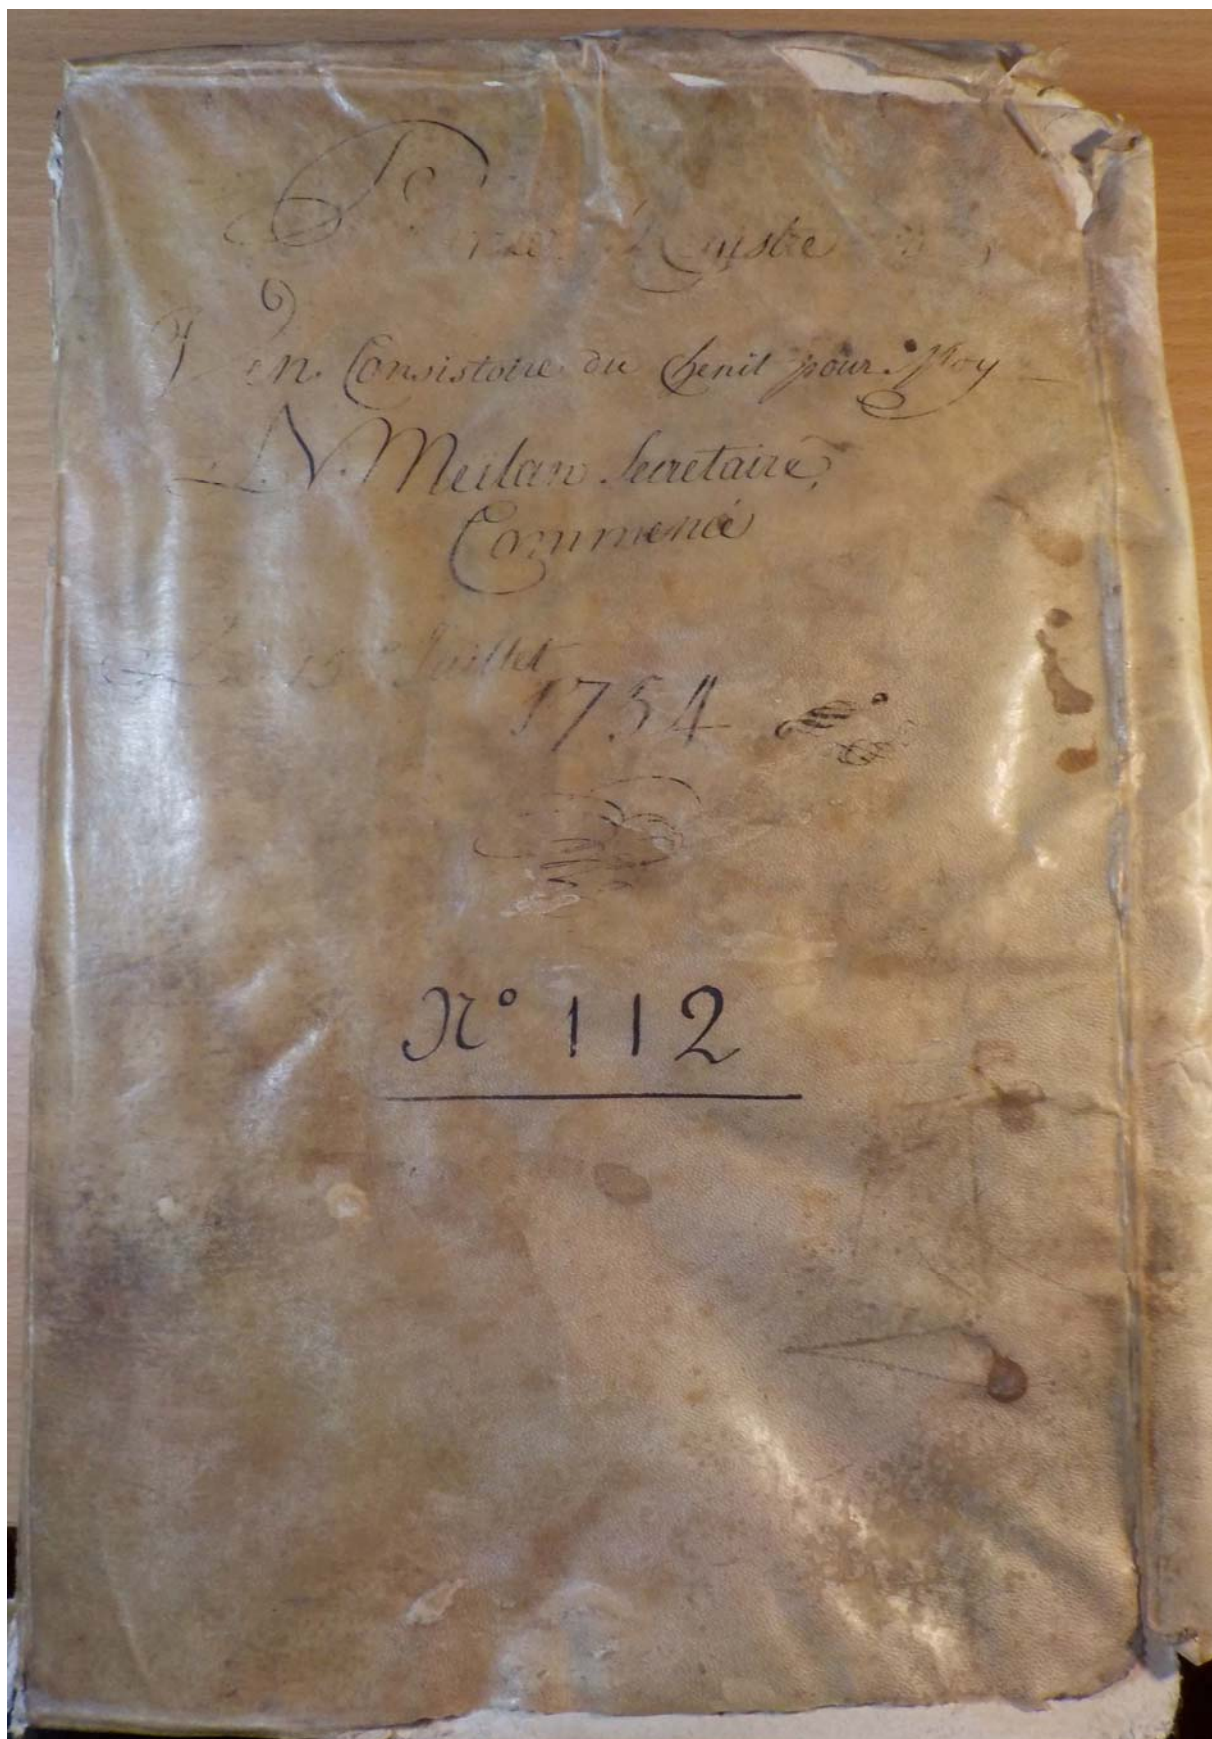 Registre
Vén. Consistoire du Chenit pour Moy
N. Meilan Secretaire,
Commencé
Le 15e Juillet
1754
N° 112